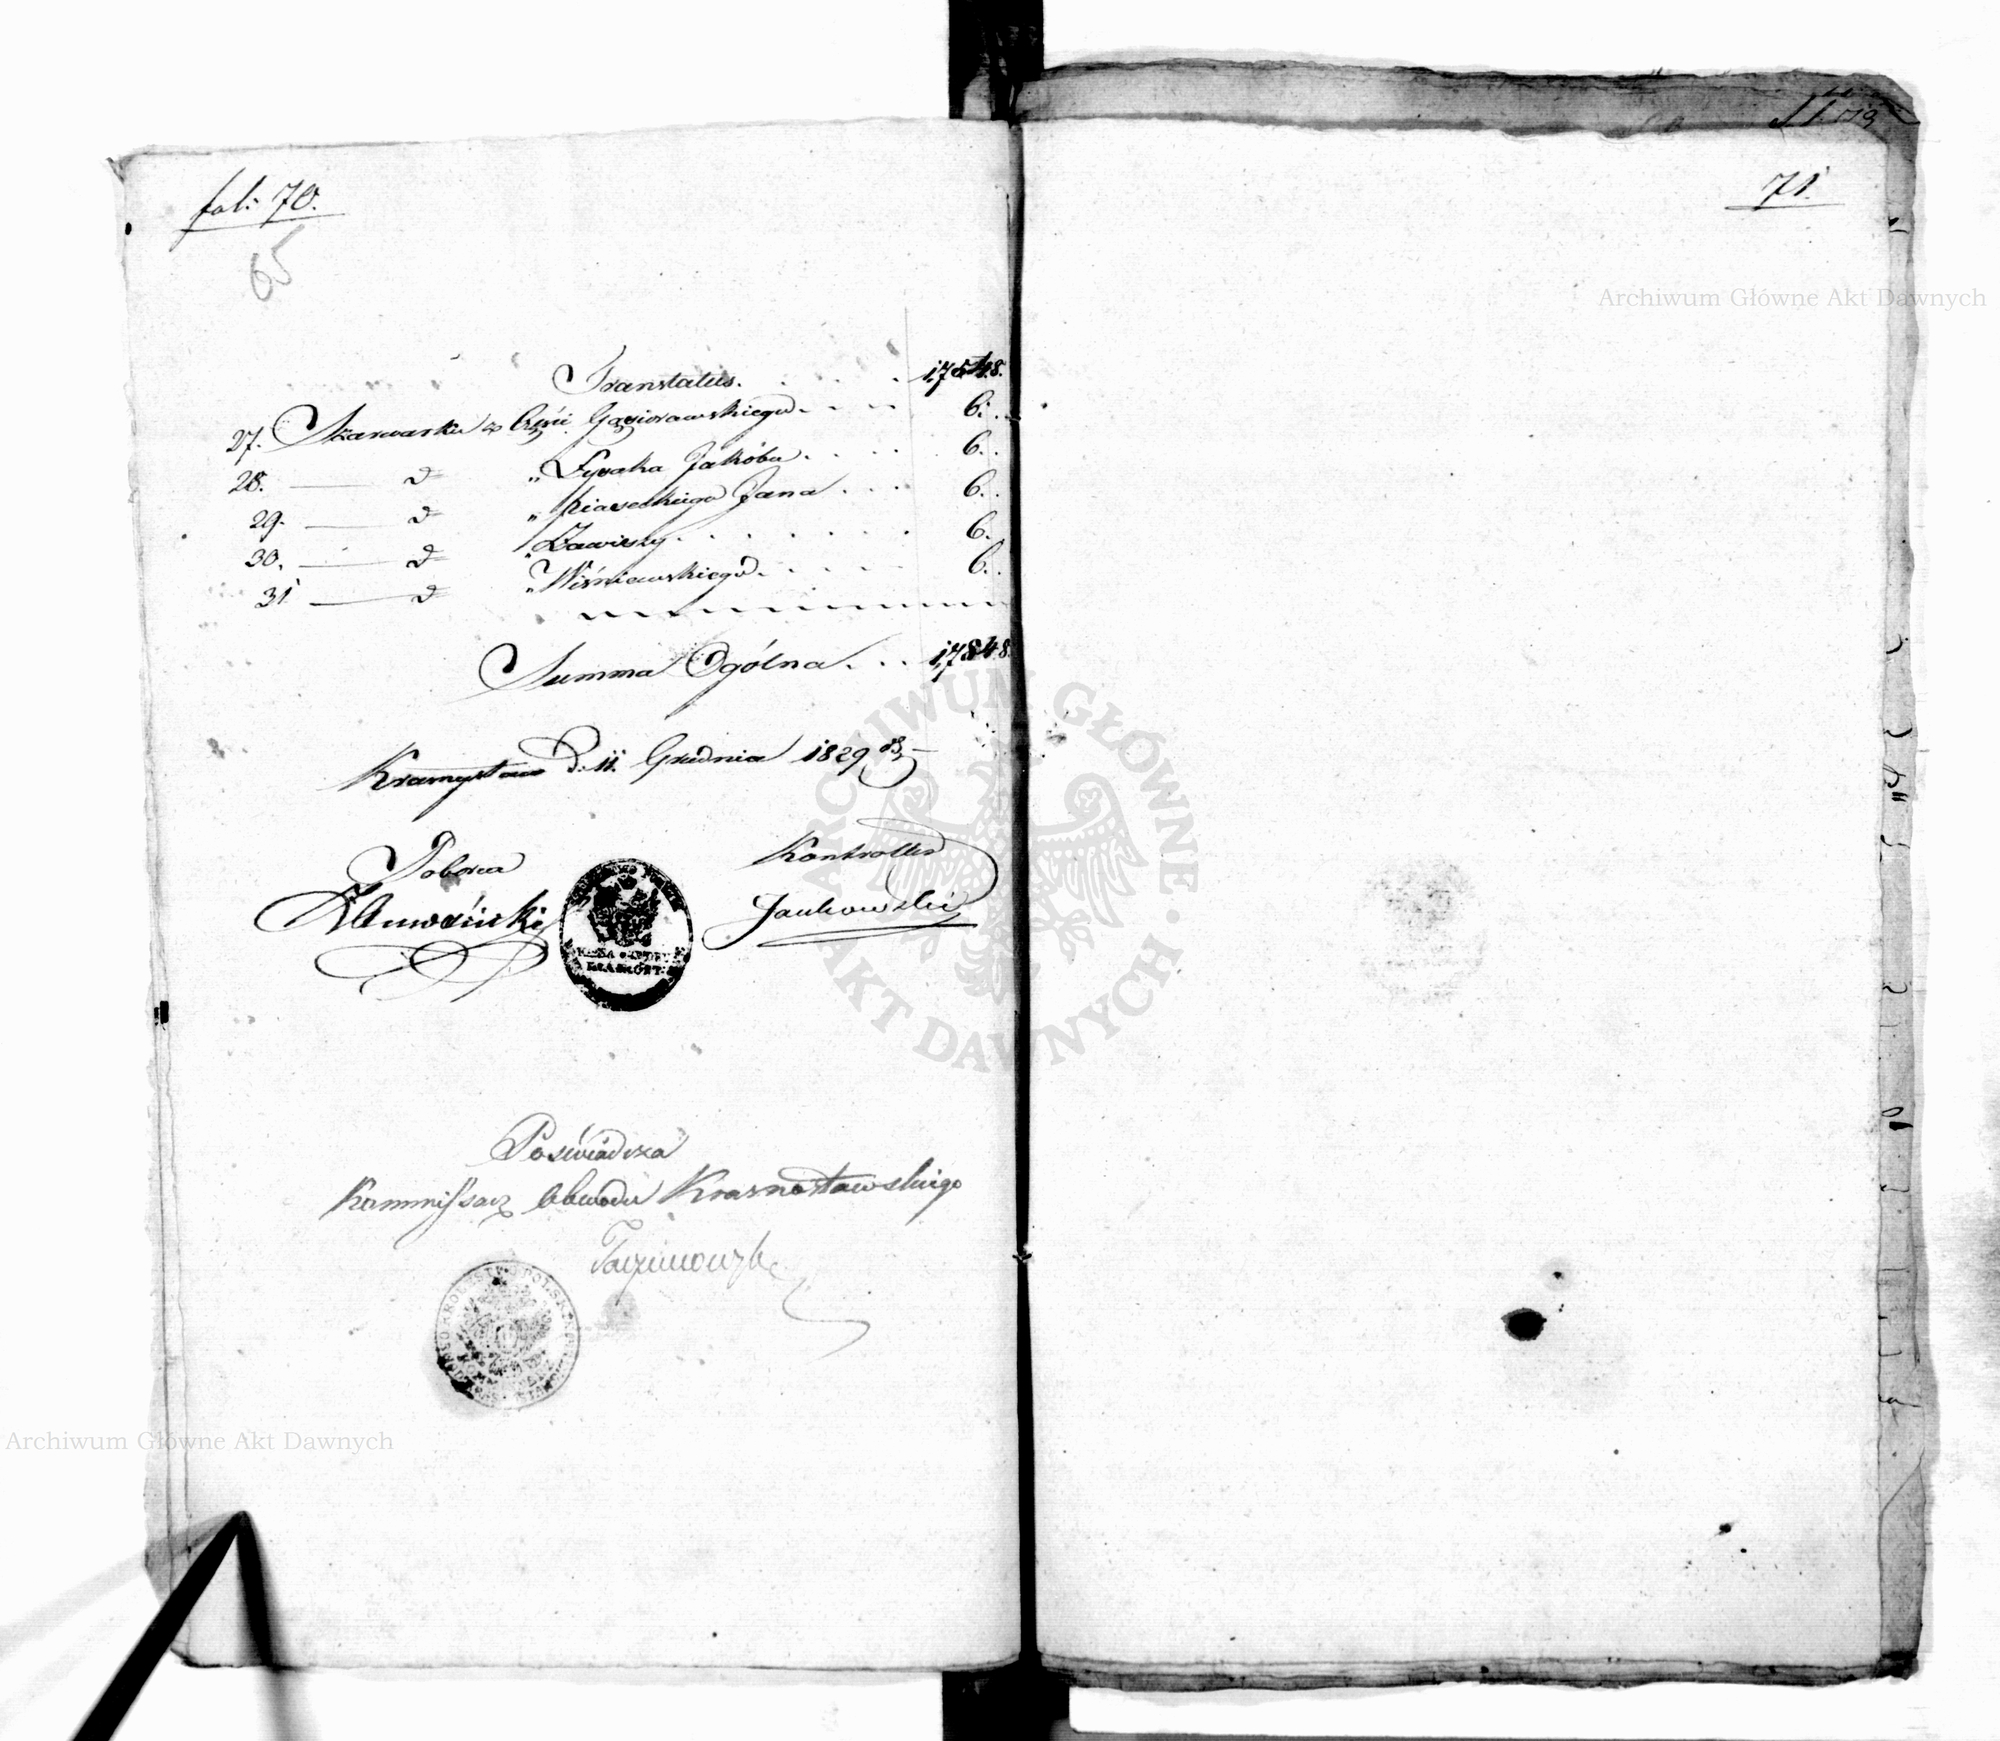 fol: 70.
65
Transtatus. . . . . 1,754.8.
27. Szarwarku z Części Gąsiorowskiego. . . . 6. .
28. — d „ Łysaka Jakóba . . . . 6. .
29. — d „ Piaseckiego Jana . . . 6. .
30. — d „ Zawiszy. . . . . . . 6. .
31 — d „ Wiśniewskiego. . . . . 6. .
Summa Ogólna . . . 1,784.8.
Krasnystaw d. 11. Grudnia 1829 r.
Poborca
Kontroller
Jankowski
KASSA
Poświadcza
Kommissarz Obwodu Krasnostawskiego
71.
Archiwum Główne Akt Dawnych
ARCHIWUM GŁÓWNE AKT DAWNYCH
Archiwum Główne Akt Dawnych